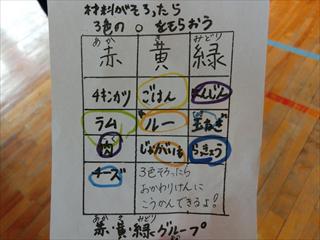 材料がそろったら
3色の○をもらおう
あか き みどり
赤 黄 緑
チキンカツ ごはん にんじん
ラム ルー 玉ねぎ
肉 じゃがいも らっきょう
チーズ
3色そろったら
おかわりけんに
こうかんできるよ!
あか き みどり
赤・黄・緑グループ